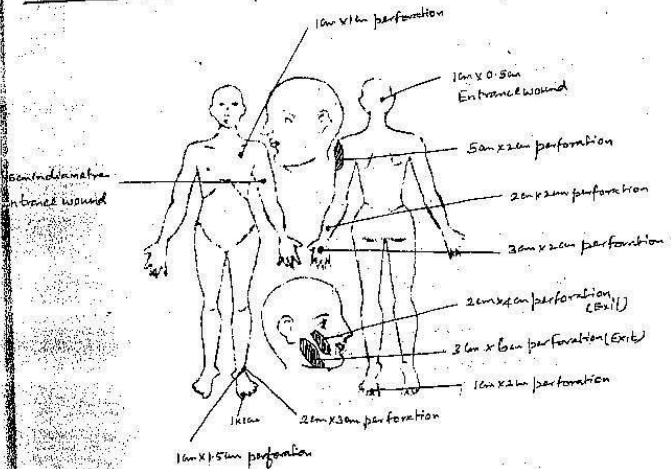 1cm x 1cm perforation
1cm x 0.5cm
Entrance wound
5cm x 2cm perforation
cm in diametre
ntrance wound
2cm x 2cm perforation
3cm x 2cm perforation
2cm x 4cm perforation
(Exit)
3cm x 6cm perforation (Exit)
1cm x 2cm perforation
1x1cm
2cm x 3cm perforation
1cm x 1.5cm perforation